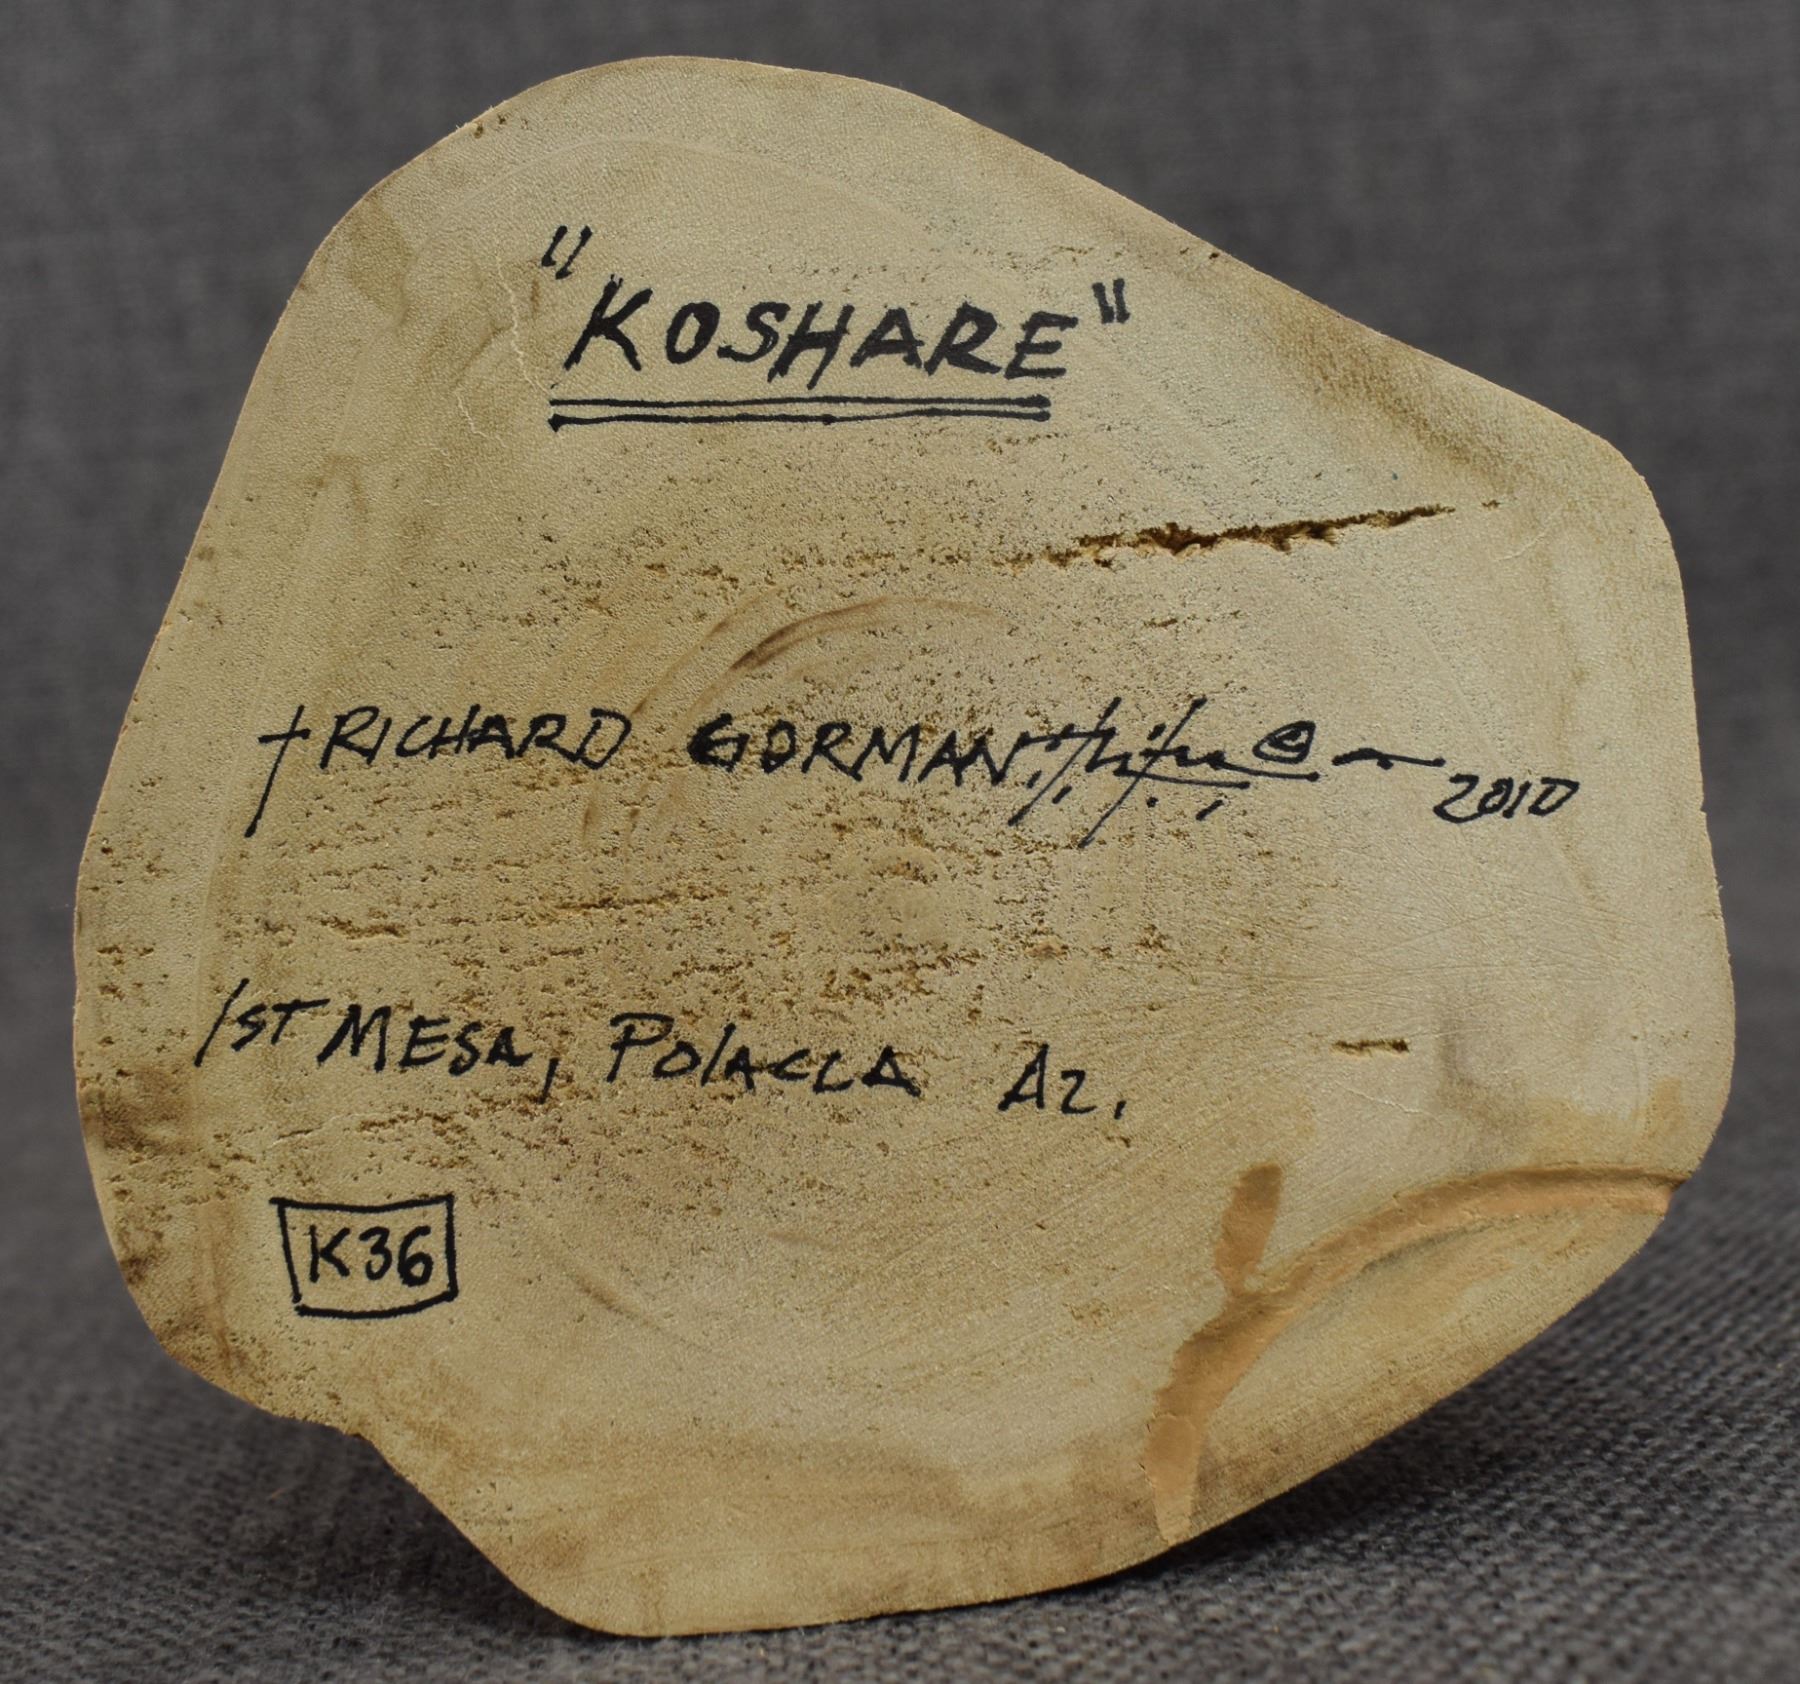 "KOSHARE"
RICHARD GORMAN 2010
1ST MESA, POLACCA AZ.
K36